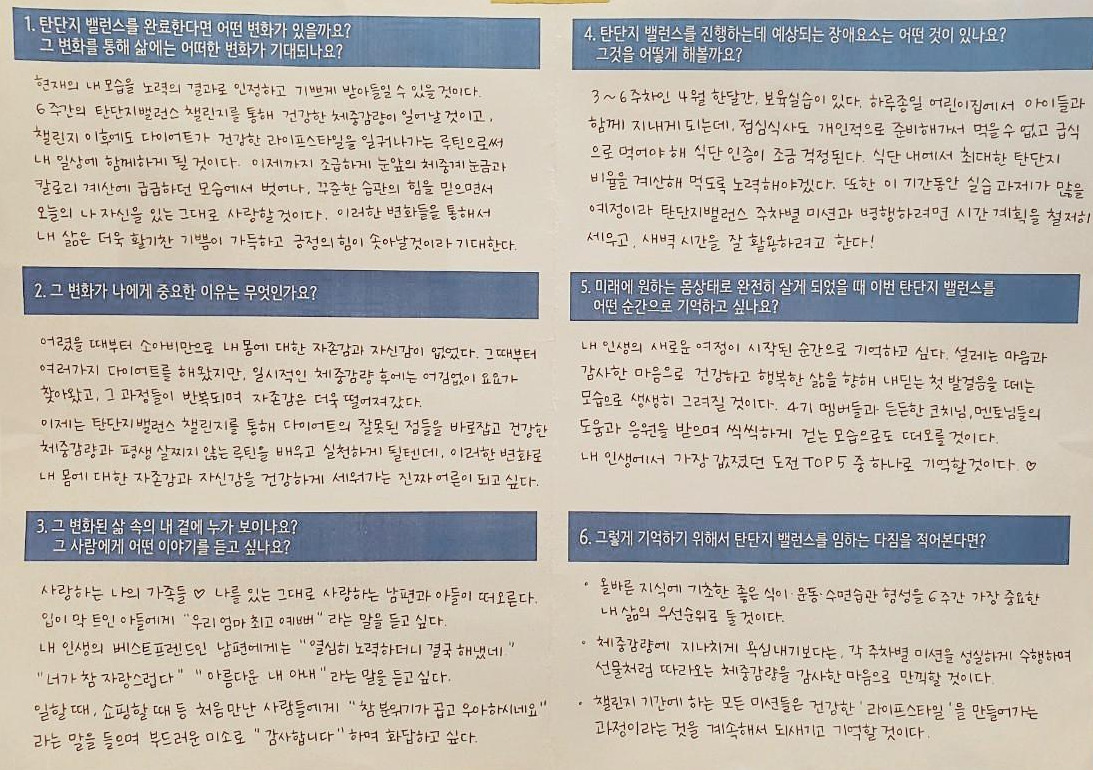 1. 탄단지 밸런스를 완료한다면 어떤 변화가 있을까요?
그 변화를 통해 삶에는 어떠한 변화가 기대되나요?
현재의 내 모습을 노력의 결과로 인정하고 기쁘게 받아들일 수 있을 것이다.
6주간의 탄단지밸런스 챌린지를 통해 건강한 체중감량이 일어날 것이고,
챌린지 이후에도 다이어트가 건강한 라이프스타일을 일궈나가는 루틴으로써
내 일상에 함께하게 될 것이다. 이제까지 조급하게 눈앞의 체중계 눈금과
칼로리 계산에 급급하던 모습에서 벗어나, 꾸준한 습관의 힘을 믿으면서
오늘의 나 자신을 있는 그대로 사랑할 것이다. 이러한 변화들을 통해서
내 삶은 더욱 활기찬 기쁨이 가득하고 긍정의 힘이 솟아날것이라 기대한다.
2. 그 변화가 나에게 중요한 이유는 무엇인가요?
어렸을 때부터 소아비만으로 내 몸에 대한 자존감과 자신감이 없었다. 그때부터
여러가지 다이어트를 해왔지만, 일시적인 체중감량 후에는 어김없이 요요가
찾아왔고, 그 과정들이 반복되며 자존감은 더욱 떨어져갔다.
이제는 탄단지밸런스 챌린지를 통해 다이어트의 잘못된 점들을 바로잡고 건강한
체중감량과 평생 살찌지 않는 루틴을 배우고 실천하게 될텐데, 이러한 변화로
내 몸에 대한 자존감과 자신감을 건강하게 세워가는 진짜 어른이 되고 싶다.
3. 그 변화된 삶 속의 내 곁에 누가 보이나요?
그 사람에게 어떤 이야기를 듣고 싶나요?
사랑하는 나의 가족들 ♡ 나를 있는 그대로 사랑하는 남편과 아들이 떠오른다.
입이 막 트인 아들에게 "우리엄마 최고 예뻐" 라는 말을 듣고 싶다.
내 인생의 베스트프렌드인 남편에게는 "열심히 노력하더니 결국 해냈네."
"너가 참 자랑스럽다" "아름다운 내 아내"라는 말을 듣고싶다.
일할 때, 쇼핑할 때 등 처음 만난 사람들에게 "참 분위기가 곱고 우아하시네요"
라는 말을 들으며 부드러운 미소로 "감사합니다" 하며 화답하고 싶다.
4. 탄단지 밸런스를 진행하는데 예상되는 장애요소는 어떤 것이 있나요?
그것을 어떻게 해볼까요?
3~6주차인 4월 한달간, 보육실습이 있다. 하루종일 어린이집에서 아이들과
함께 지내게 되는데, 점심식사도 개인적으로 준비해가서 먹을 수 없고 급식
으로 먹어야 해 식단 인증이 조금 걱정된다. 식단 내에서 최대한 탄단지
비율을 계산해 먹도록 노력해야겠다. 또한 이 기간동안 실습 과제가 많을
예정이라 탄단지밸런스 주차별 미션과 병행하려면 시간 계획을 철저히
세우고, 새벽 시간을 잘 활용하려고 한다!
5. 미래에 원하는 몸상태로 완전히 살게 되었을 때 이번 탄단지 밸런스를
어떤 순간으로 기억하고 싶나요?
내 인생의 새로운 여정이 시작된 순간으로 기억하고 싶다. 설레는 마음과
감사한 마음으로 건강하고 행복한 삶을 향해 내딛는 첫 발걸음을 떼는
모습으로 생생히 그려질 것이다. 4기 멤버들과 든든한 코치님, 멘토님들의
도움과 응원을 받으며 씩씩하게 걷는 모습으로도 떠오를 것이다.
내 인생에서 가장 값졌던 도전 TOP 5 중 하나로 기억할것이다. ♡
6. 그렇게 기억하기 위해서 탄단지 밸런스를 임하는 다짐을 적어본다면?
• 올바른 지식에 기초한 좋은 식이·운동·수면습관 형성을 6주간 가장 중요한
내 삶의 우선순위로 둘 것이다.
• 체중감량에 지나치게 욕심내기보다는, 각 주차별 미션을 성실하게 수행하며
선물처럼 따라오는 체중감량을 감사한 마음으로 만끽할 것이다.
• 챌린지 기간에 하는 모든 미션들은 건강한 '라이프스타일'을 만들어가는
과정이라는 것을 계속해서 되새기고 기억할 것이다.